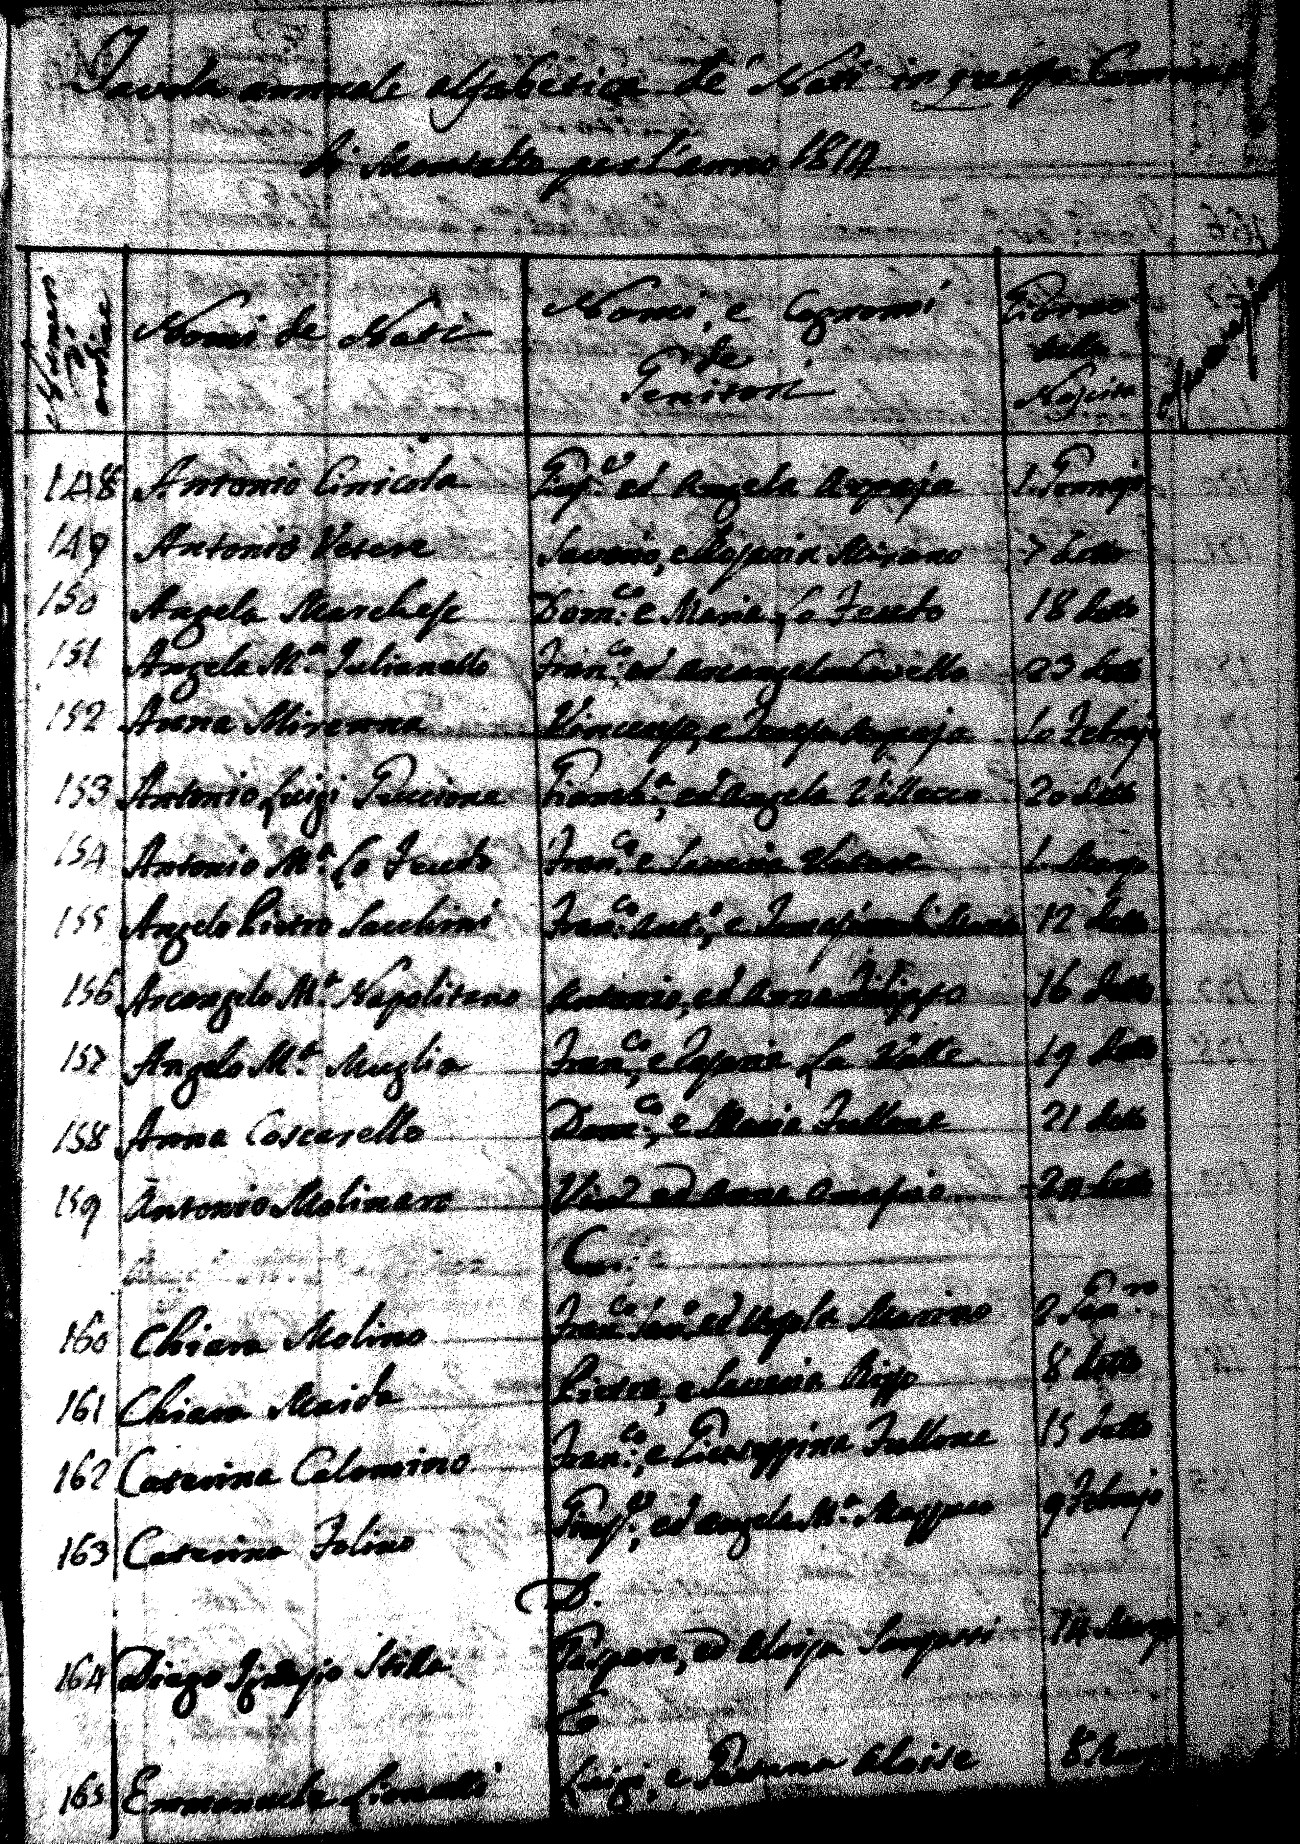 Tavola annuale alfabetica de' Nati in questa Comune
di Montalto per l'anno 1814
Numero d'ordine Nomi de Nati Nomi, e Cognomi de Genitori Giorno della Nascita
148 Antonio Cinicola Gius.e ed Angela Arpaja 1. Gennajo
149 Antonio Vetere Saverio, e Rosaria Mirano 7 detto
150 Angela Marchese Dom.co e Maria Lo Feudo 18 detto
151 Angela M.a Julianello Fran.co ed Arcangela Covello 23 detto
152 Anna Mirenna Vincenzo, e Teresa Arpaja 10 Febrajo
153 Antonio Luigi Puccione Giamb.a, ed Angela Villecco 20 detto
154 Antonio M.a Lo Feudo Fran.co e Saveria Vetere 1. Marzo
155 Angelo Pietro Sacchini Fran.co Ant.o, e 12 detto
156 Arcangelo M.a Napolitano Antonio, ed Anna Filippo 16 detto
157 Angelo M.a Muglia Fran.co, e Rosaria La Valle 19 detto
158 Anna Coscarello Dom.co, e Maria Fullone 21 detto
159 Antonio Molinaro Vin.o ed Anna Onofrio 24 detto
C.
160 Chiara Molino Fran.co Sav.o ed Agata Marino 2 Gen.ro
161 Chiara Maida Pietro, e Saveria Rizzo 8 detto
162 Caterina Calomino Fran.co, e Giuseppina Fullone 15 detto
163 Caterina Folino Gius.e, ed Angela M.a Mazzuca 9 Febrajo
D.
164 Diego Ignazio Stilla Gaspare, ed Aloisa 14 Marzo
E
165 Emmanuela Luigi, e Aloise 8.